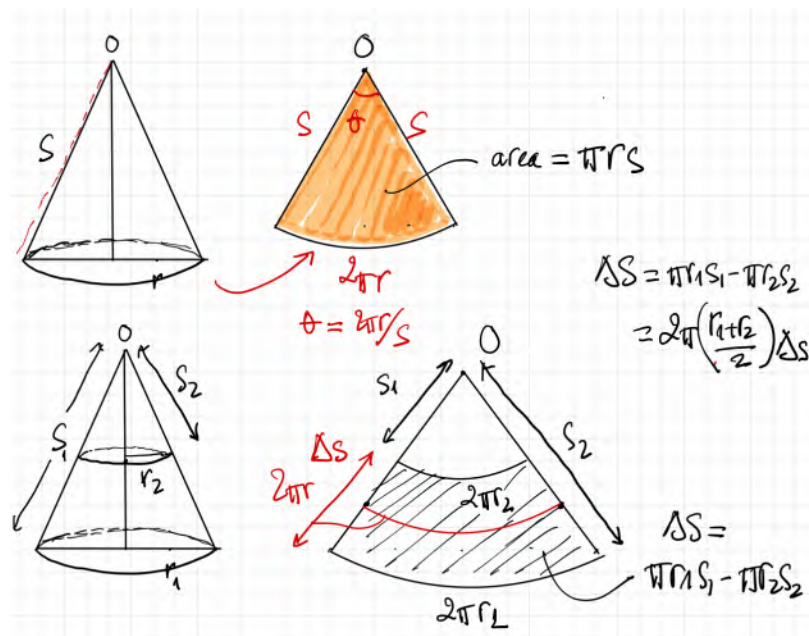 O
S
r
O
S
θ
S
area = πrs
2πr
θ = 2πr/s
ΔS = πr1s1 - πr2s2
= 2π(r1+r2/2)Δs
O
S1
S2
r2
r1
O
S1
S2
ΔS
2πr
2πr2
2πr1
ΔS =
πr1s1 - πr2s2